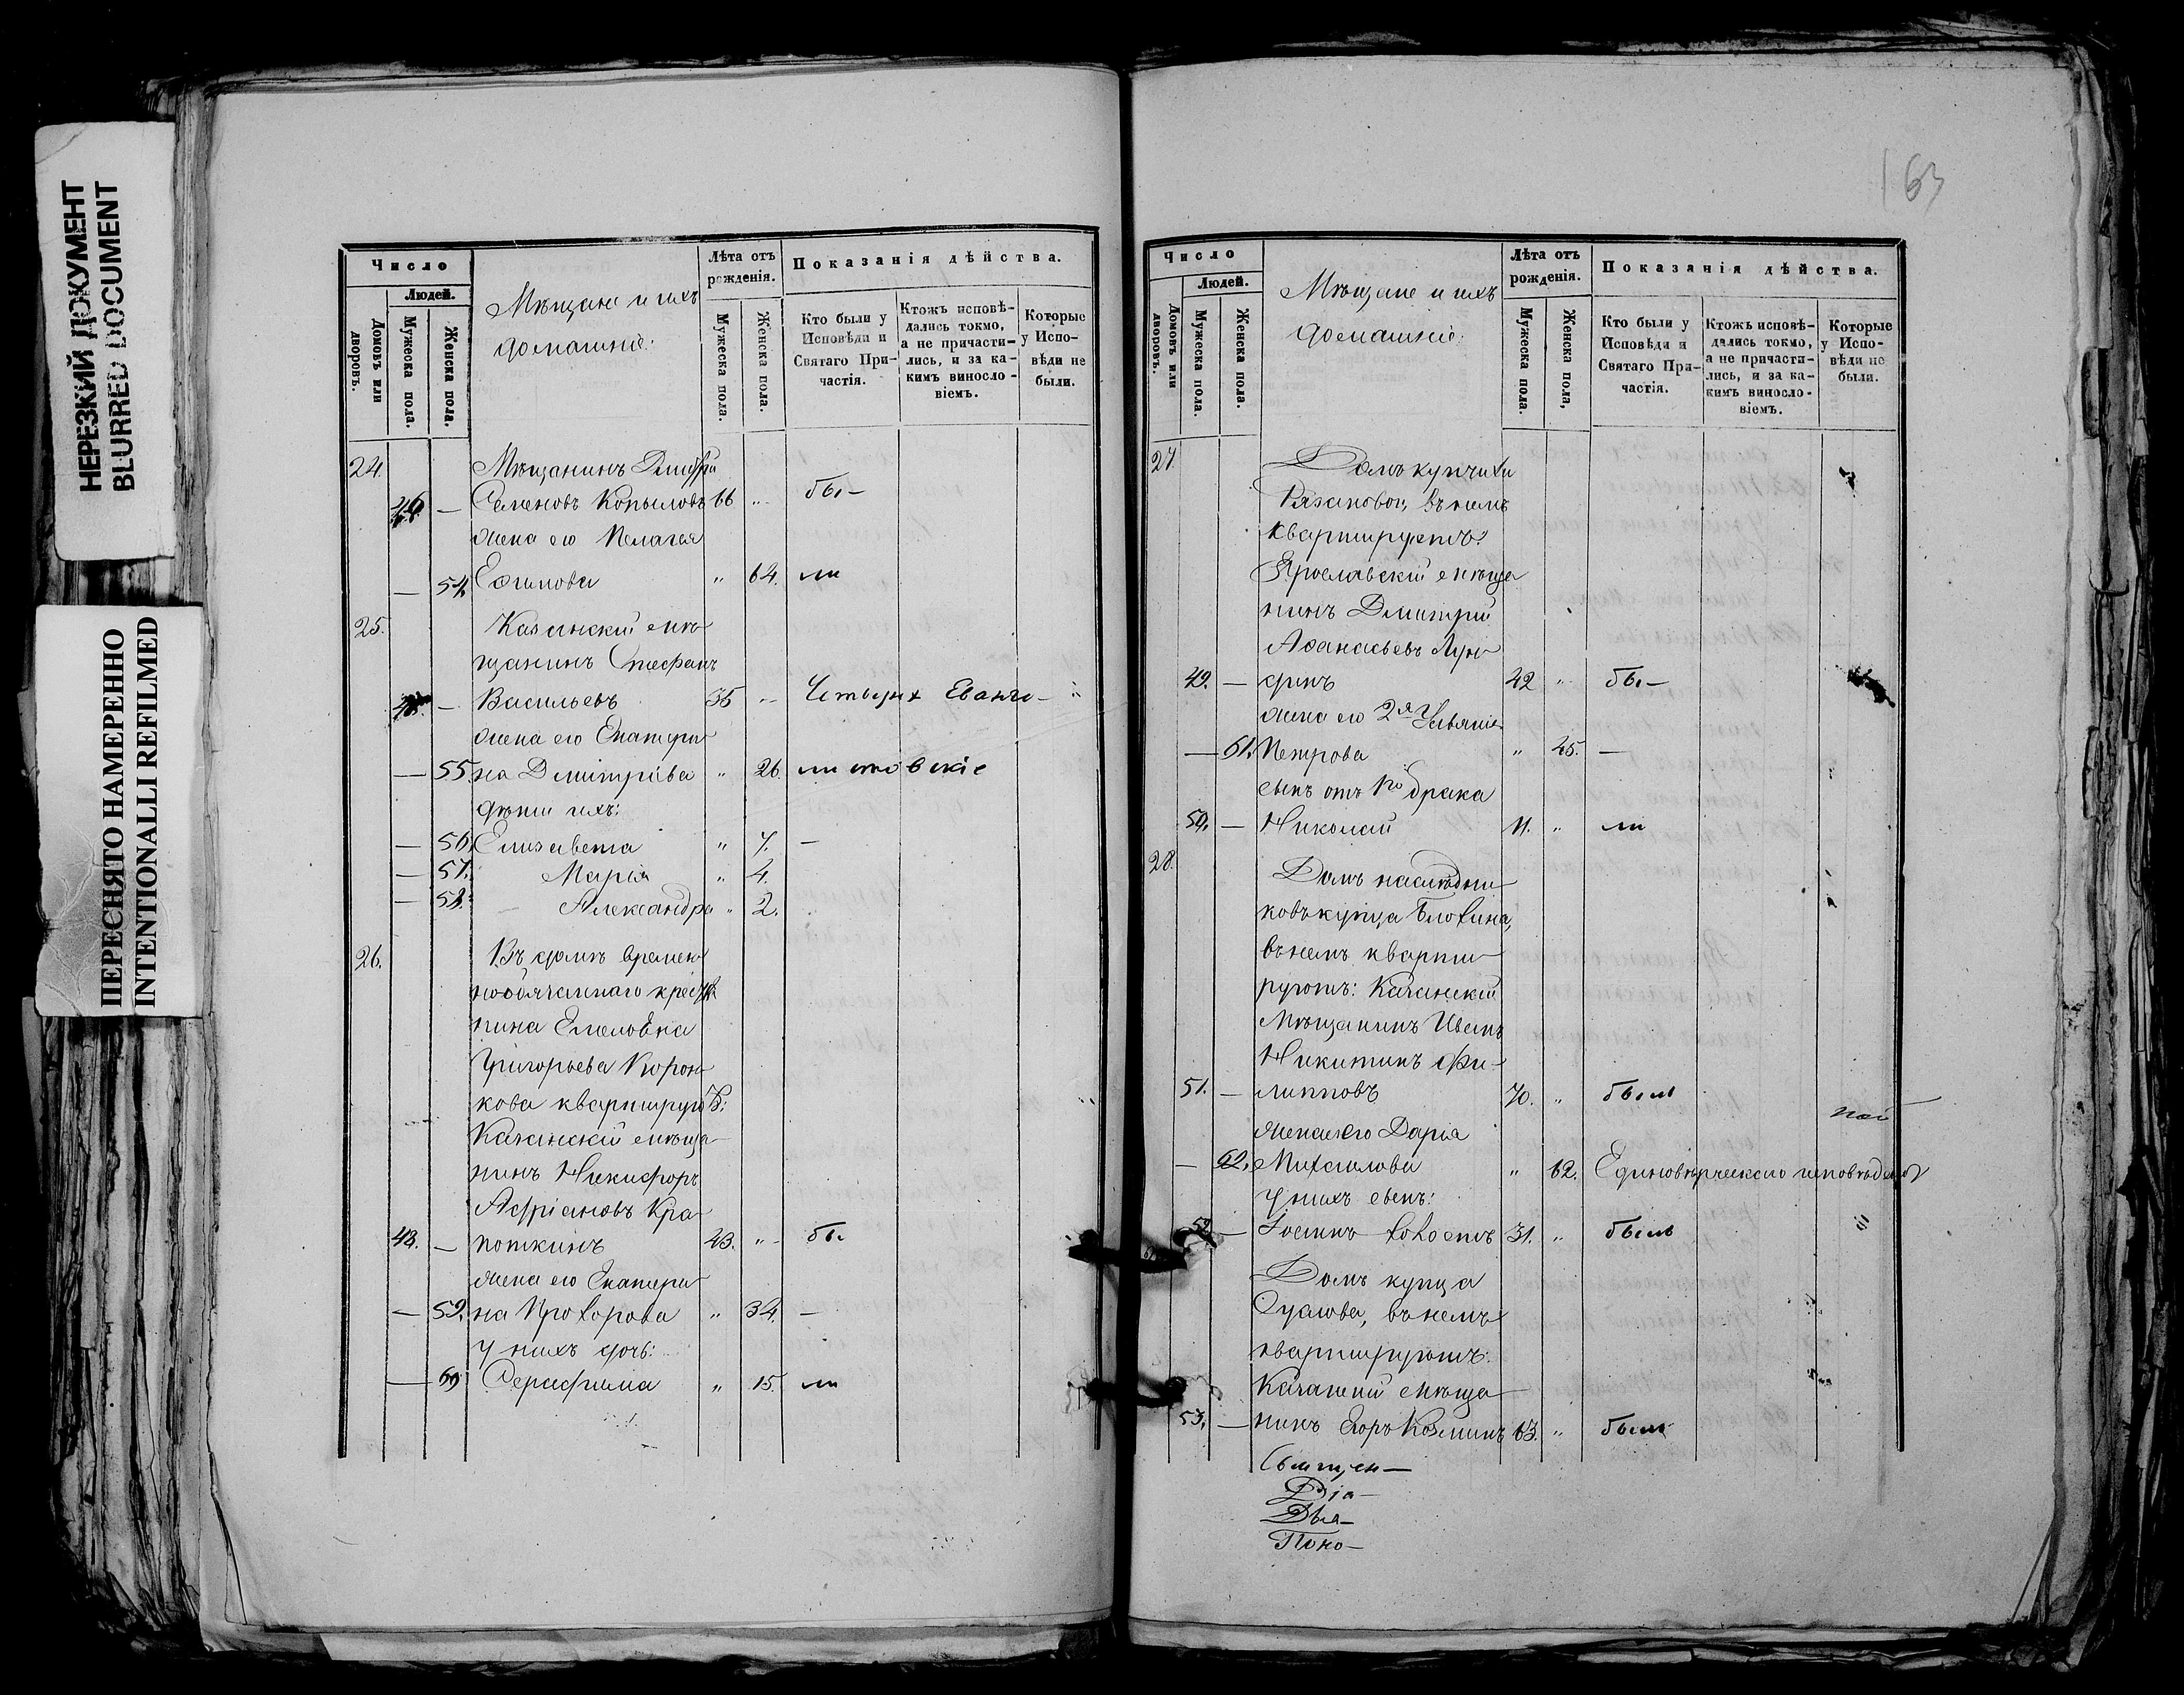 НЕРЕЗКИЙ ДОКУМЕНТ
BLURRED DOCUMENT
ПЕРЕСНЯТО НАМЕРЕННО
INTENTIONALLI REFILMED
Число
Людей.
Домовъ или дворовъ.
Мужеска пола.
Женска пола.
Мѣщане и ихъ
домашніе:
Лѣта отъ рожденія.
Мужеска пола.
Женска пола.
Показанія дѣйства.
Кто были у Исповѣди и Святаго Причастія.
Ктожъ исповѣдались токмо, а не причастились, и за какимъ винословіемъ.
Которые у Исповѣди не были.
24. Мѣщанинъ Дмитрій
— Семеновъ Копыловъ 66 " бы—
жена его Пелагея
— 54. Ефимова " 64. ли
25. Казанскій мѣ-
щанинъ Стефанъ
— Васильевъ 35 " Четырех Еванге—
жена его Екатери-
— 55. на Дмитріева " 26.
дѣти ихъ:
— 56. Елизавета " 7. —
— 57. Марія " 4.
— 58. Александра " 2.
26. Въ домѣ времен-
нообязаннаго крестья-
нина
Григорьева
кова квартируютъ:
Казанскій мѣща-
нинъ Никифоръ
Адріановъ Кра-
48. — поткинъ 43. " бы
жена его Екатери-
— 59. на Прохорова " 34. —
у нихъ дочь:
— 60 Серафима " 15. ли
163
Число
Людей.
Домовъ или дворовъ.
Мужеска пола.
Женска пола.
Мѣщане и ихъ
домашніе:
Лѣта отъ рожденія.
Мужеска пола.
Женска пола,
Показанія дѣйства.
Кто были у Исповѣди и Святаго Причастія.
Ктожъ исповѣдались токмо, а не причастились, и за какимъ винословіемъ.
Которые у Исповѣди не были.
27. Домъ купчихи
Рязановой, въ немъ
квартируетъ:
Ярославскій мѣща-
нинъ Дмитрій
Аѳанасьевъ
49. — 42 " бы—
жена его 2я Ульянія
— 61. Петрова " 45. —
сынъ отъ 1го брака
50. — Николай 11. " ли
28. Домъ наслѣдни-
ковъ купца Блохина,
въ немъ кварти-
руютъ: Казанскій
Мѣщанинъ Иванъ
Никитинъ Фи-
51. — липповъ 70. " былъ
жена его Дарія
— 62. Михаилова " 62. Единовѣрческаго исповѣдан
ной
у нихъ сынъ:
52 — холостъ 31. " былъ
Домъ купца
въ немъ
квартируютъ:
Казанскій мѣща-
53. — нинъ Егоръ Козминъ 63. " былъ
Священ—
Діа—
Дья—
Поно—